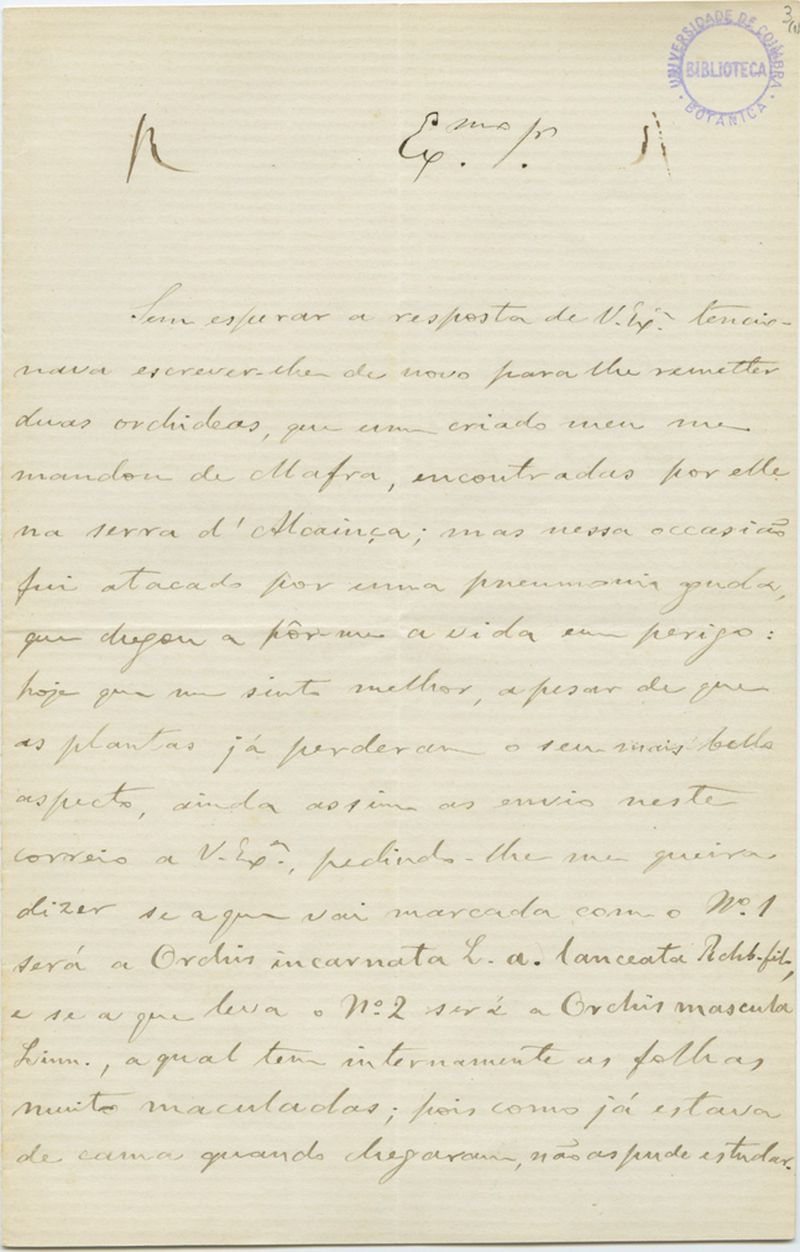 3
UNIVERSIDADE DE COIMBRA
BIBLIOTECA
BOTANICA
R Ex.mo Sr.
Sem esperar a resposta de V. Exª. tencio-
nava escrever-lhe de novo para lhe remetter
duas orchideas, que um criado meu me
mandou de Mafra, encontradas por elle
na serra d'Alcainça; mas nessa occasião
fui atacado por uma pneumonia aguda,
que chegou a pôr-me a vida em perigo:
hoje que me sinto melhor, apesar de que
as plantas já perderam o seu mais bello
aspecto, ainda assim as envio neste
correio a V. Exª., pedindo-lhe me queira
dizer se a que vai marcada com o Nº. 1
será a Orchis incarnata L. a. lanceata Rchb. fil.,
e se a que leva o Nº. 2 será a Orchis mascula
Linn., a qual tem internamente as folhas
muito maculadas; pois como já estava
de cama quando chegaram, não as pude estudar.